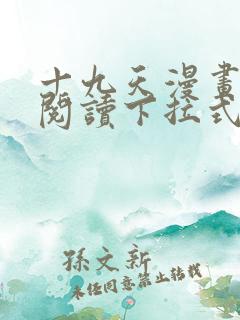 十九天漫畫
閱讀下拉式
孫文新
未經同意禁止轉載